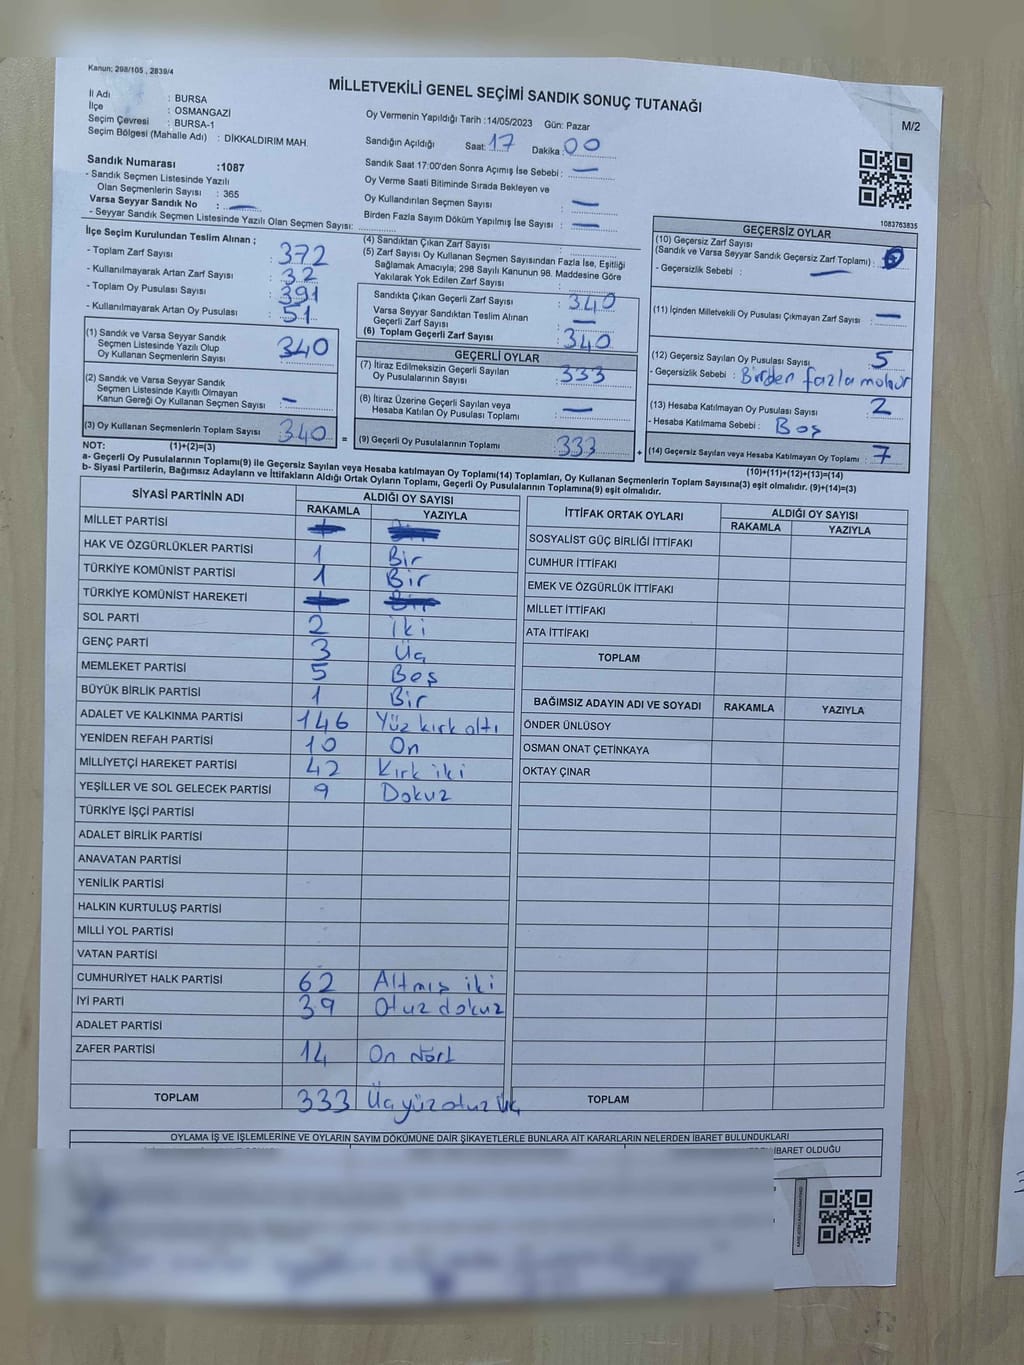 Kanun: 298/105 , 2839/4
MİLLETVEKİLİ GENEL SEÇİMİ SANDIK SONUÇ TUTANAĞI
M/2
İl Adı : BURSA
İlçe : OSMANGAZİ
Seçim Çevresi : BURSA-1
Seçim Bölgesi (Mahalle Adı) : DİKKALDIRIM MAH.
Oy Vermenin Yapıldığı Tarih :14/05/2023 Gün: Pazar
Sandığın Açıldığı Saat: 17 Dakika : 00
Sandık Saat 17:00'den Sonra Açımış İse Sebebi : —
Oy Verme Saati Bitiminde Sırada Bekleyen ve
Oy Kullandırılan Seçmen Sayısı : —
Birden Fazla Sayım Döküm Yapılmış İse Sayısı : —
Sandık Numarası :1087
- Sandık Seçmen Listesinde Yazılı
Olan Seçmenlerin Sayısı : 365
Varsa Seyyar Sandık No : —
- Seyyar Sandık Seçmen Listesinde Yazılı Olan Seçmen Sayısı:
1083763835
İlçe Seçim Kurulundan Teslim Alınan ;
- Toplam Zarf Sayısı : 372
- Kullanılmayarak Artan Zarf Sayısı : 32
- Toplam Oy Pusulası Sayısı : 391
- Kullanılmayarak Artan Oy Pusulası : 51
(1) Sandık ve Varsa Seyyar Sandık
Seçmen Listesinde Yazılı Olup
Oy Kullanan Seçmenlerin Sayısı : 340
(2) Sandık ve Varsa Seyyar Sandık
Seçmen Listesinde Kayıtlı Olmayan
Kanun Gereği Oy Kullanan Seçmen Sayısı : —
(3) Oy Kullanan Seçmenlerin Toplam Sayısı : 340
(1)+(2)=(3)
(4) Sandıktan Çıkan Zarf Sayısı :
(5) Zarf Sayısı Oy Kullanan Seçmen Sayısından Fazla İse, Eşitliği
Sağlamak Amacıyla; 298 Sayılı Kanunun 98. Maddesine Göre
Yakılarak Yok Edilen Zarf Sayısı :
Sandıkta Çıkan Geçerli Zarf Sayısı : 340
Varsa Seyyar Sandıktan Teslim Alınan
Geçerli Zarf Sayısı : —
(6) Toplam Geçerli Zarf Sayısı : 340
GEÇERLİ OYLAR
(7) İtiraz Edilmeksizin Geçerli Sayılan
Oy Pusulalarının Sayısı : 333
(8) İtiraz Üzerine Geçerli Sayılan veya
Hesaba Katılan Oy Pusulası Toplamı : —
= (9) Geçerli Oy Pusulalarının Toplamı : 333 +
GEÇERSİZ OYLAR
(10) Geçersiz Zarf Sayısı
(Sandık ve Varsa Seyyar Sandık Geçersiz Zarf Toplamı) :
- Geçersizlik Sebebi : —
(11) İçinden Milletvekili Oy Pusulası Çıkmayan Zarf Sayısı : —
(12) Geçersiz Sayılan Oy Pusulası Sayısı : 5
- Geçersizlik Sebebi : Birden fazla mühür
(13) Hesaba Katılmayan Oy Pusulası Sayısı : 2
- Hesaba Katılmama Sebebi : Boş
(14) Geçersiz Sayılan veya Hesaba Katılmayan Oy Toplamı : 7
(10)+(11)+(12)+(13)=(14)
NOT:
a- Geçerli Oy Pusulalarının Toplamı(9) ile Geçersiz Sayılan veya Hesaba katılmayan Oy Toplamı(14) Toplamları, Oy Kullanan Seçmenlerin Toplam Sayısına(3) eşit olmalıdır. (9)+(14)=(3)
b- Siyasi Partilerin, Bağımsız Adayların ve İttifakların Aldığı Ortak Oyların Toplamı, Geçerli Oy Pusulalarının Toplamına(9) eşit olmalıdır.
SİYASİ PARTİNİN ADI ALDIĞI OY SAYISI
RAKAMLA YAZIYLA
MİLLET PARTİSİ
HAK VE ÖZGÜRLÜKLER PARTİSİ 1 Bir
TÜRKİYE KOMÜNİST PARTİSİ 1 Bir
TÜRKİYE KOMÜNİST HAREKETİ
SOL PARTİ 2 İki
GENÇ PARTİ 3 Üç
MEMLEKET PARTİSİ 5 Beş
BÜYÜK BİRLİK PARTİSİ 1 Bir
ADALET VE KALKINMA PARTİSİ 146 Yüz kırk altı
YENİDEN REFAH PARTİSİ 10 On
MİLLİYETÇİ HAREKET PARTİSİ 42 Kırk iki
YEŞİLLER VE SOL GELECEK PARTİSİ 9 Dokuz
TÜRKİYE İŞÇİ PARTİSİ
ADALET BİRLİK PARTİSİ
ANAVATAN PARTİSİ
YENİLİK PARTİSİ
HALKIN KURTULUŞ PARTİSİ
MİLLİ YOL PARTİSİ
VATAN PARTİSİ
CUMHURİYET HALK PARTİSİ 62 Altmış iki
İYİ PARTİ 39 Otuz dokuz
ADALET PARTİSİ
ZAFER PARTİSİ 14 On dört
TOPLAM 333 Üçyüz otuz üç
İTTİFAK ORTAK OYLARI ALDIĞI OY SAYISI
RAKAMLA YAZIYLA
SOSYALİST GÜÇ BİRLİĞİ İTTİFAKI
CUMHUR İTTİFAKI
EMEK VE ÖZGÜRLÜK İTTİFAKI
MİLLET İTTİFAKI
ATA İTTİFAKI
TOPLAM
BAĞIMSIZ ADAYIN ADI VE SOYADI RAKAMLA YAZIYLA
ÖNDER ÜNLÜSOY
OSMAN ONAT ÇETİNKAYA
OKTAY ÇINAR
TOPLAM
OYLAMA İŞ VE İŞLEMLERİNE VE OYLARIN SAYIM DÖKÜMÜNE DAİR ŞİKAYETLERLE BUNLARA AİT KARARLARIN NELERDEN İBARET BULUNDUKLARI
İBARET OLDUĞU